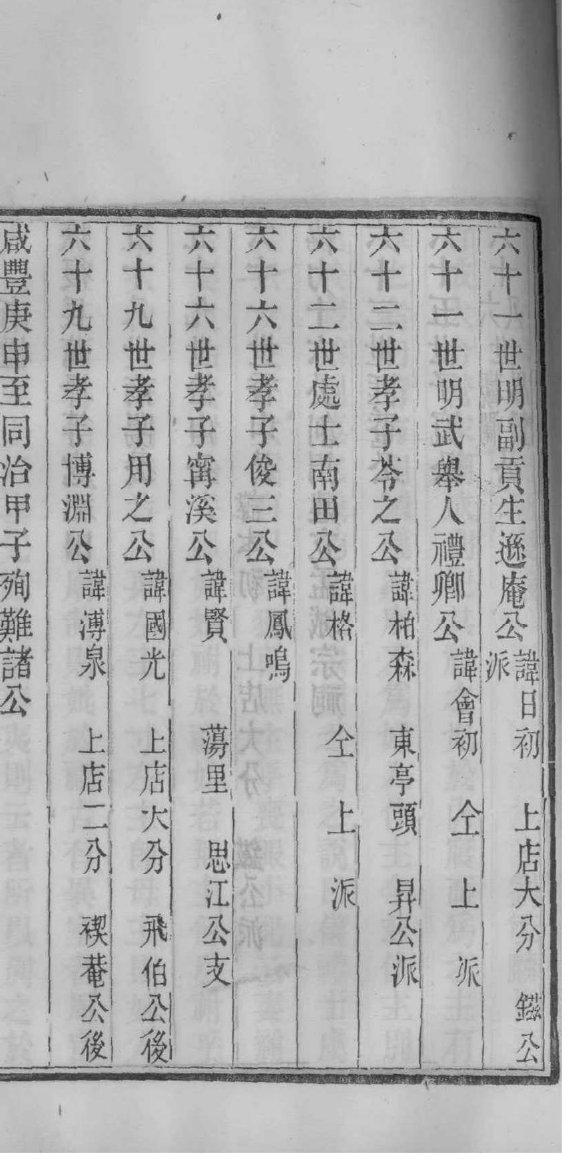 六十一世明副貢生遜庵公 諱日初 上店大分 鎡公派
六十一世明武舉人禮卿公 諱會初 仝上派
六十二世孝子岺之公 諱柏森 東亭頭 昇公派
六十二世處士南田公 諱格 仝上派
六十六世孝子俊三公 諱鳳鳴
六十六世孝子甯溪公 諱賢 蕩里 思江公支
六十九世孝子用之公 諱國光 上店大分 飛伯公後
六十九世孝子博淵公 諱溥泉 上店二分 禊菴公後
咸豐庚申至同治甲子殉難諸公